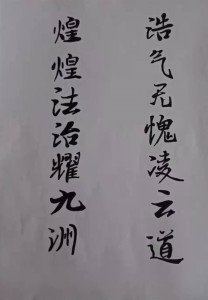 浩气无愧凌云道
煌煌法治耀九洲